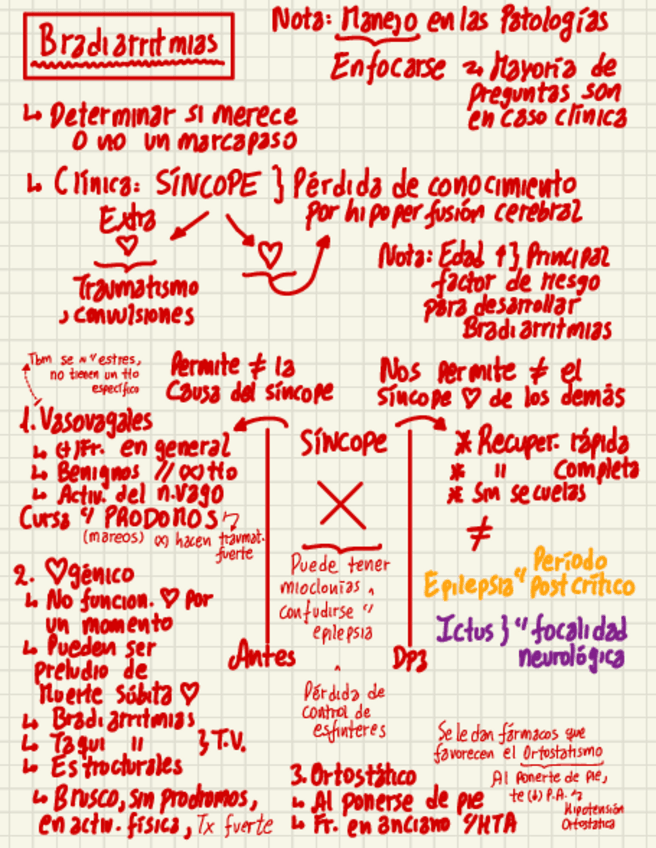 Bradiarritmias
Nota: Manejo en las Patologías
Enfocarse → Mayoría de
preguntas son
en caso clínica
↳ Determinar si merece
o no un marcapaso
↳ Clínica: SÍNCOPE } Pérdida de conocimiento
por hipoperfusión cerebral
Extra
♡
♡
Traumatismo
, convulsiones
Nota: Edad ↑ } Principal
factor de riesgo
para desarrollar
Bradiarritmias
Tbm se estres,
no tienen un tto
específico
Permite ≠ la
Causa del síncope
Nos permite ≠ el
síncope ♡ de los demás
1. Vasovagales
↳ (+) Fr. en general
↳ Benignos // (x) tto
↳ Activ. del n. vago
Cursa PRODOMOS
(mareos) (x) hacen traumat.
fuerte
SÍNCOPE
Puede tener
mioclonias,
confudirse
epilepsia
Pérdida de
control de
esfinteres
Antes
Dps
* Recuper. rápida
* " Completa
* Sin secuelas
≠
Epilepsia Período
Post crítico
Ictus } focalidad
neurológica
2. ♡génico
↳ No funcion. ♡ por
un momento
↳ Pueden ser
preludio de
Muerte súbita ♡
↳ Bradiarritmias
↳ Taqui " } T.V.
↳ Estructurales
↳ Brusco, sin prodromos,
en activ. física, Tx fuerte
3. Ortostático
↳ Al ponerse de pie
↳ Fr. en anciano HTA
Se le dan fármacos que
favorecen el Ortostatismo
Al ponerte de pie,
te (↓) P.A.
Hipotensión
Ortostática